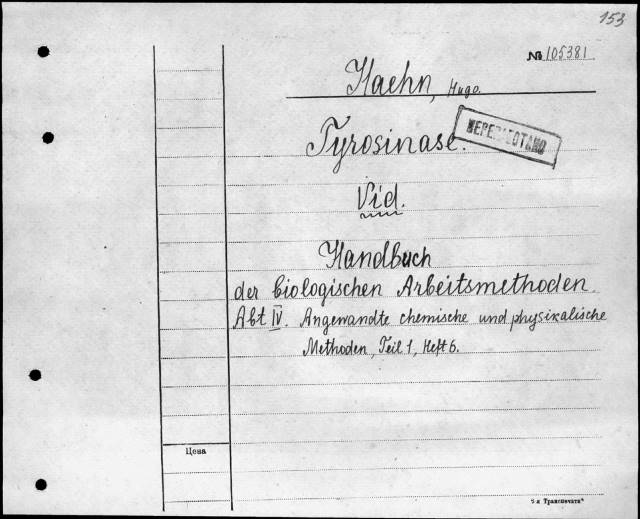 153
№ 105381
Haehn, Hugo.
Tyrosinase.
ПЕРЕРАБОТАНО
Vid.
Handbuch
der biologischen Arbeitsmethoden.
Abt IV. Angewandte chemische und physikalische
Methoden, Teil 1, Heft 6.
Цена
"я Транспечати"